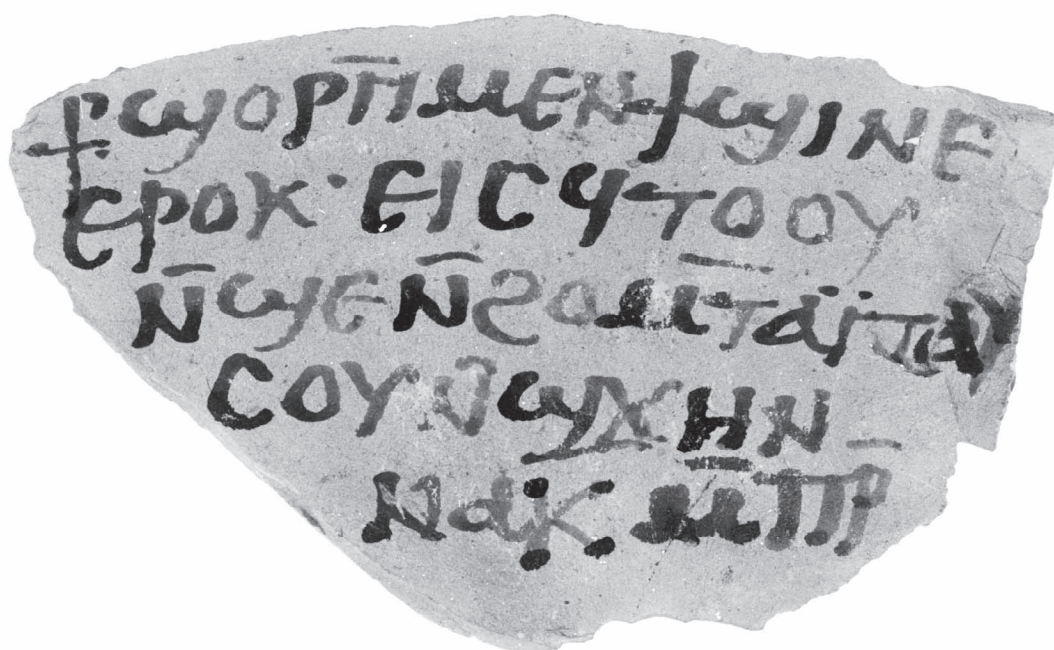 ⳨ ϣⲟⲣⲡ̄ ⲙⲉⲛ ϯϣⲓⲛⲉ
ⲉⲣⲟⲕ· ⲉⲓⲥ ϥⲧⲟⲟⲩ
ⲛ̄ϣⲉ ⲛ̄ϩⲟⲙ̄ⲧ̄ ⲁⲓ̈ⲧⲁⲩ
ⲥⲟⲩ ⲛ̄ϣϫⲏⲛ
ⲛⲁⲕ ⲙ̄ⲡⲣ̄